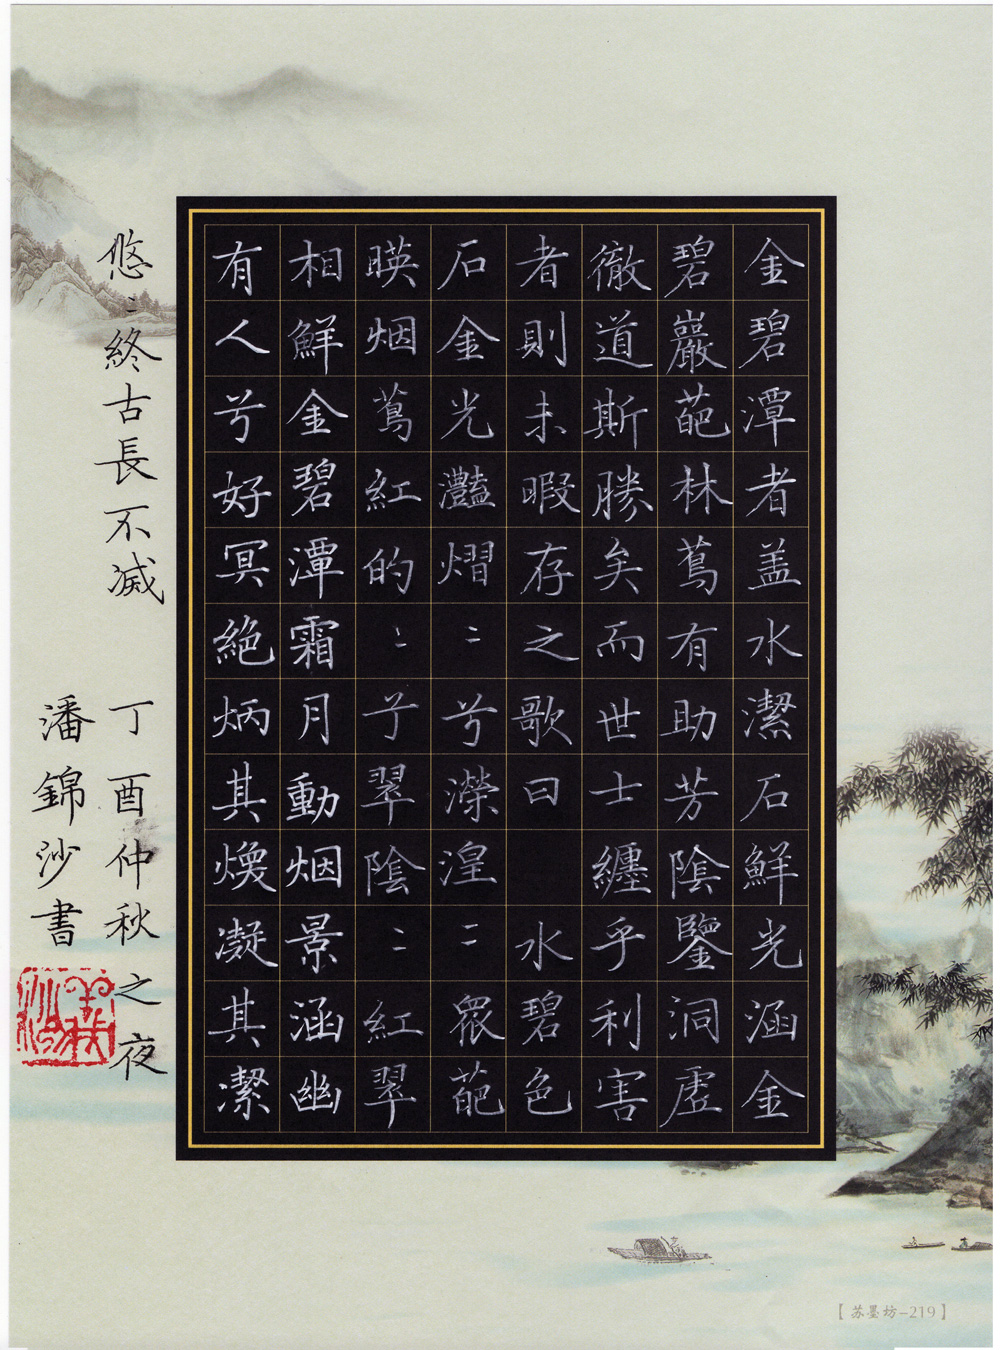 金碧潭者盖水潔石鮮光涵金
碧巖葩林蔦有助芳陰鑒洞虛
徹道斯勝矣而世士纏乎利害
者則未暇存之歌曰 水碧色
石金光灩熠〻兮濴湟〻眾葩
暎烟蔦紅的〻兮翠陰〻紅翠
相鮮金碧潭霜月動烟景涵幽
有人兮好冥絕炳其煥凝其潔
悠〻終古長不滅
丁酉仲秋之夜
潘錦沙書
【苏墨坊-219】